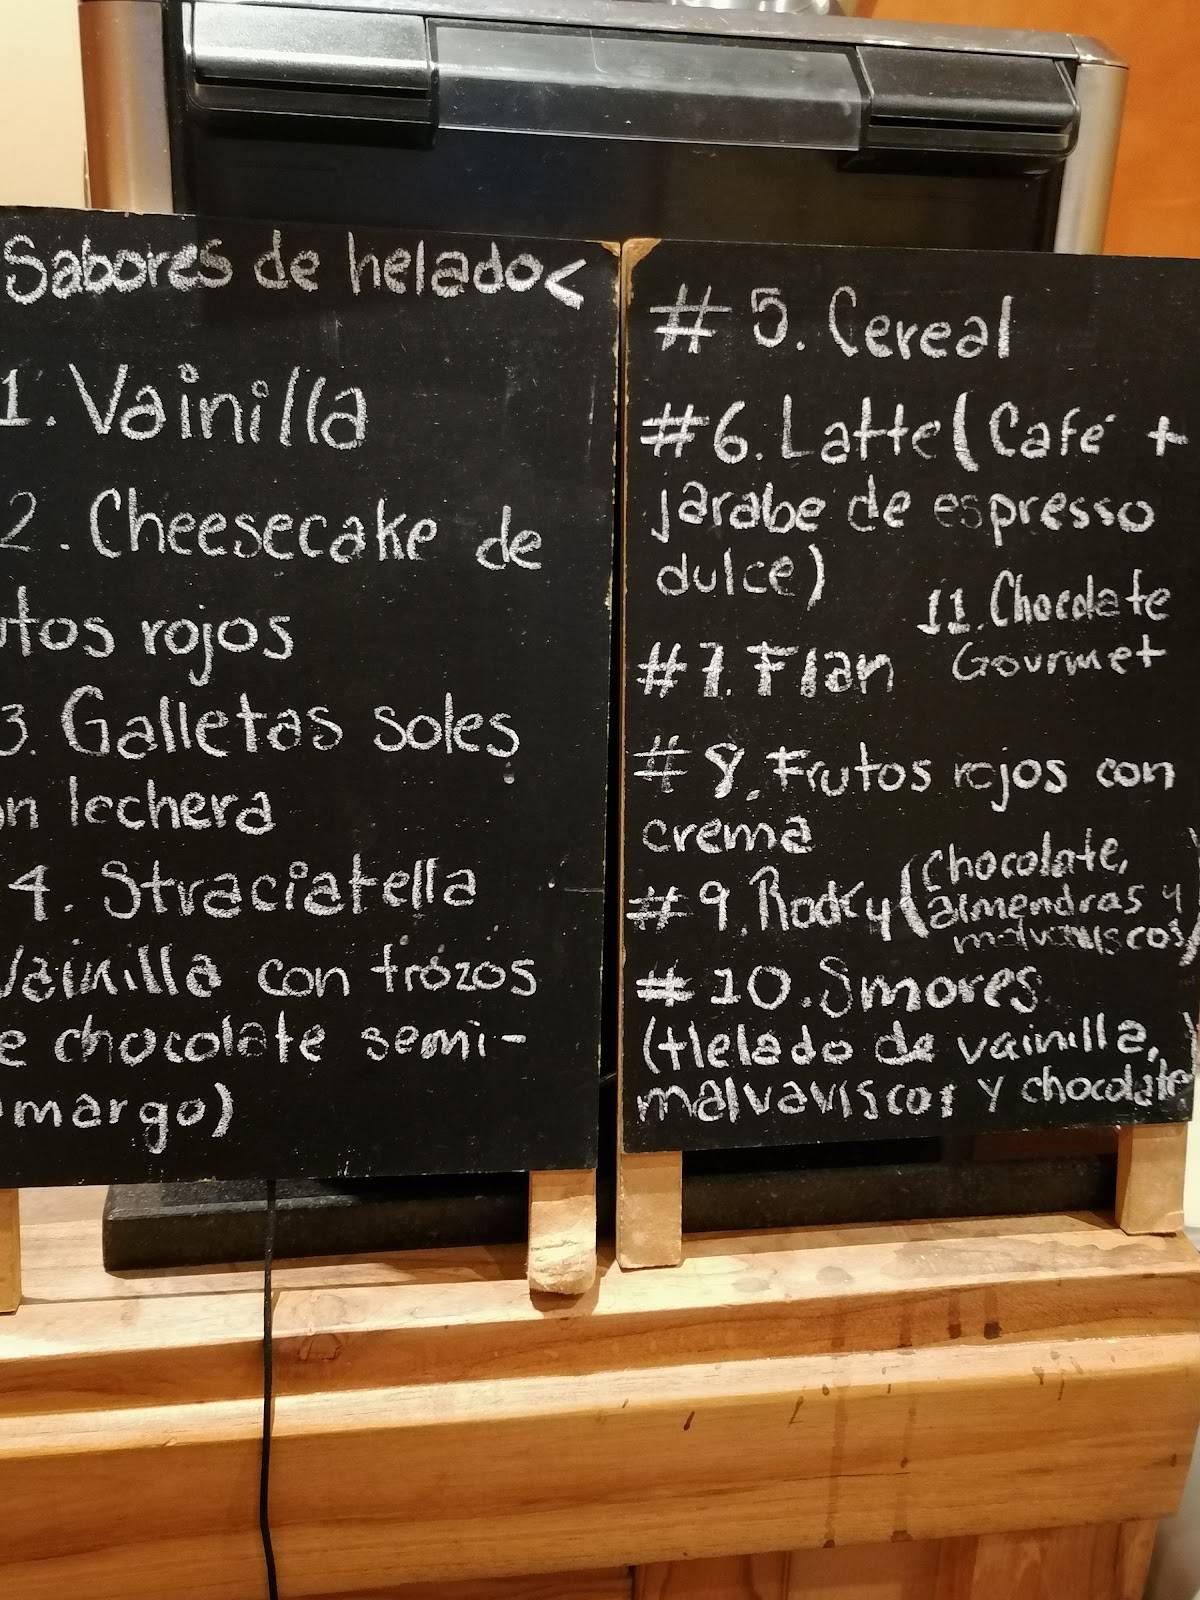 Sabores de helado<
1. Vainilla
2. Cheesecake de
utos rojos
3. Galletas soles
on lechera
4. Straciatella
Vainilla con trozos
e chocolate semi-
margo)
# 5. Cereal
#6. Latte (Café +
jarabe de espresso
dulce)
11. Chocolate
Gourmet
#7. Flan
# 8. Frutos rojos con
crema
#9. Rocky (chocolate,
almendras y
malvaviscos)
#10. Smores
(Helado de vainilla,
malvaviscos y chocolate)